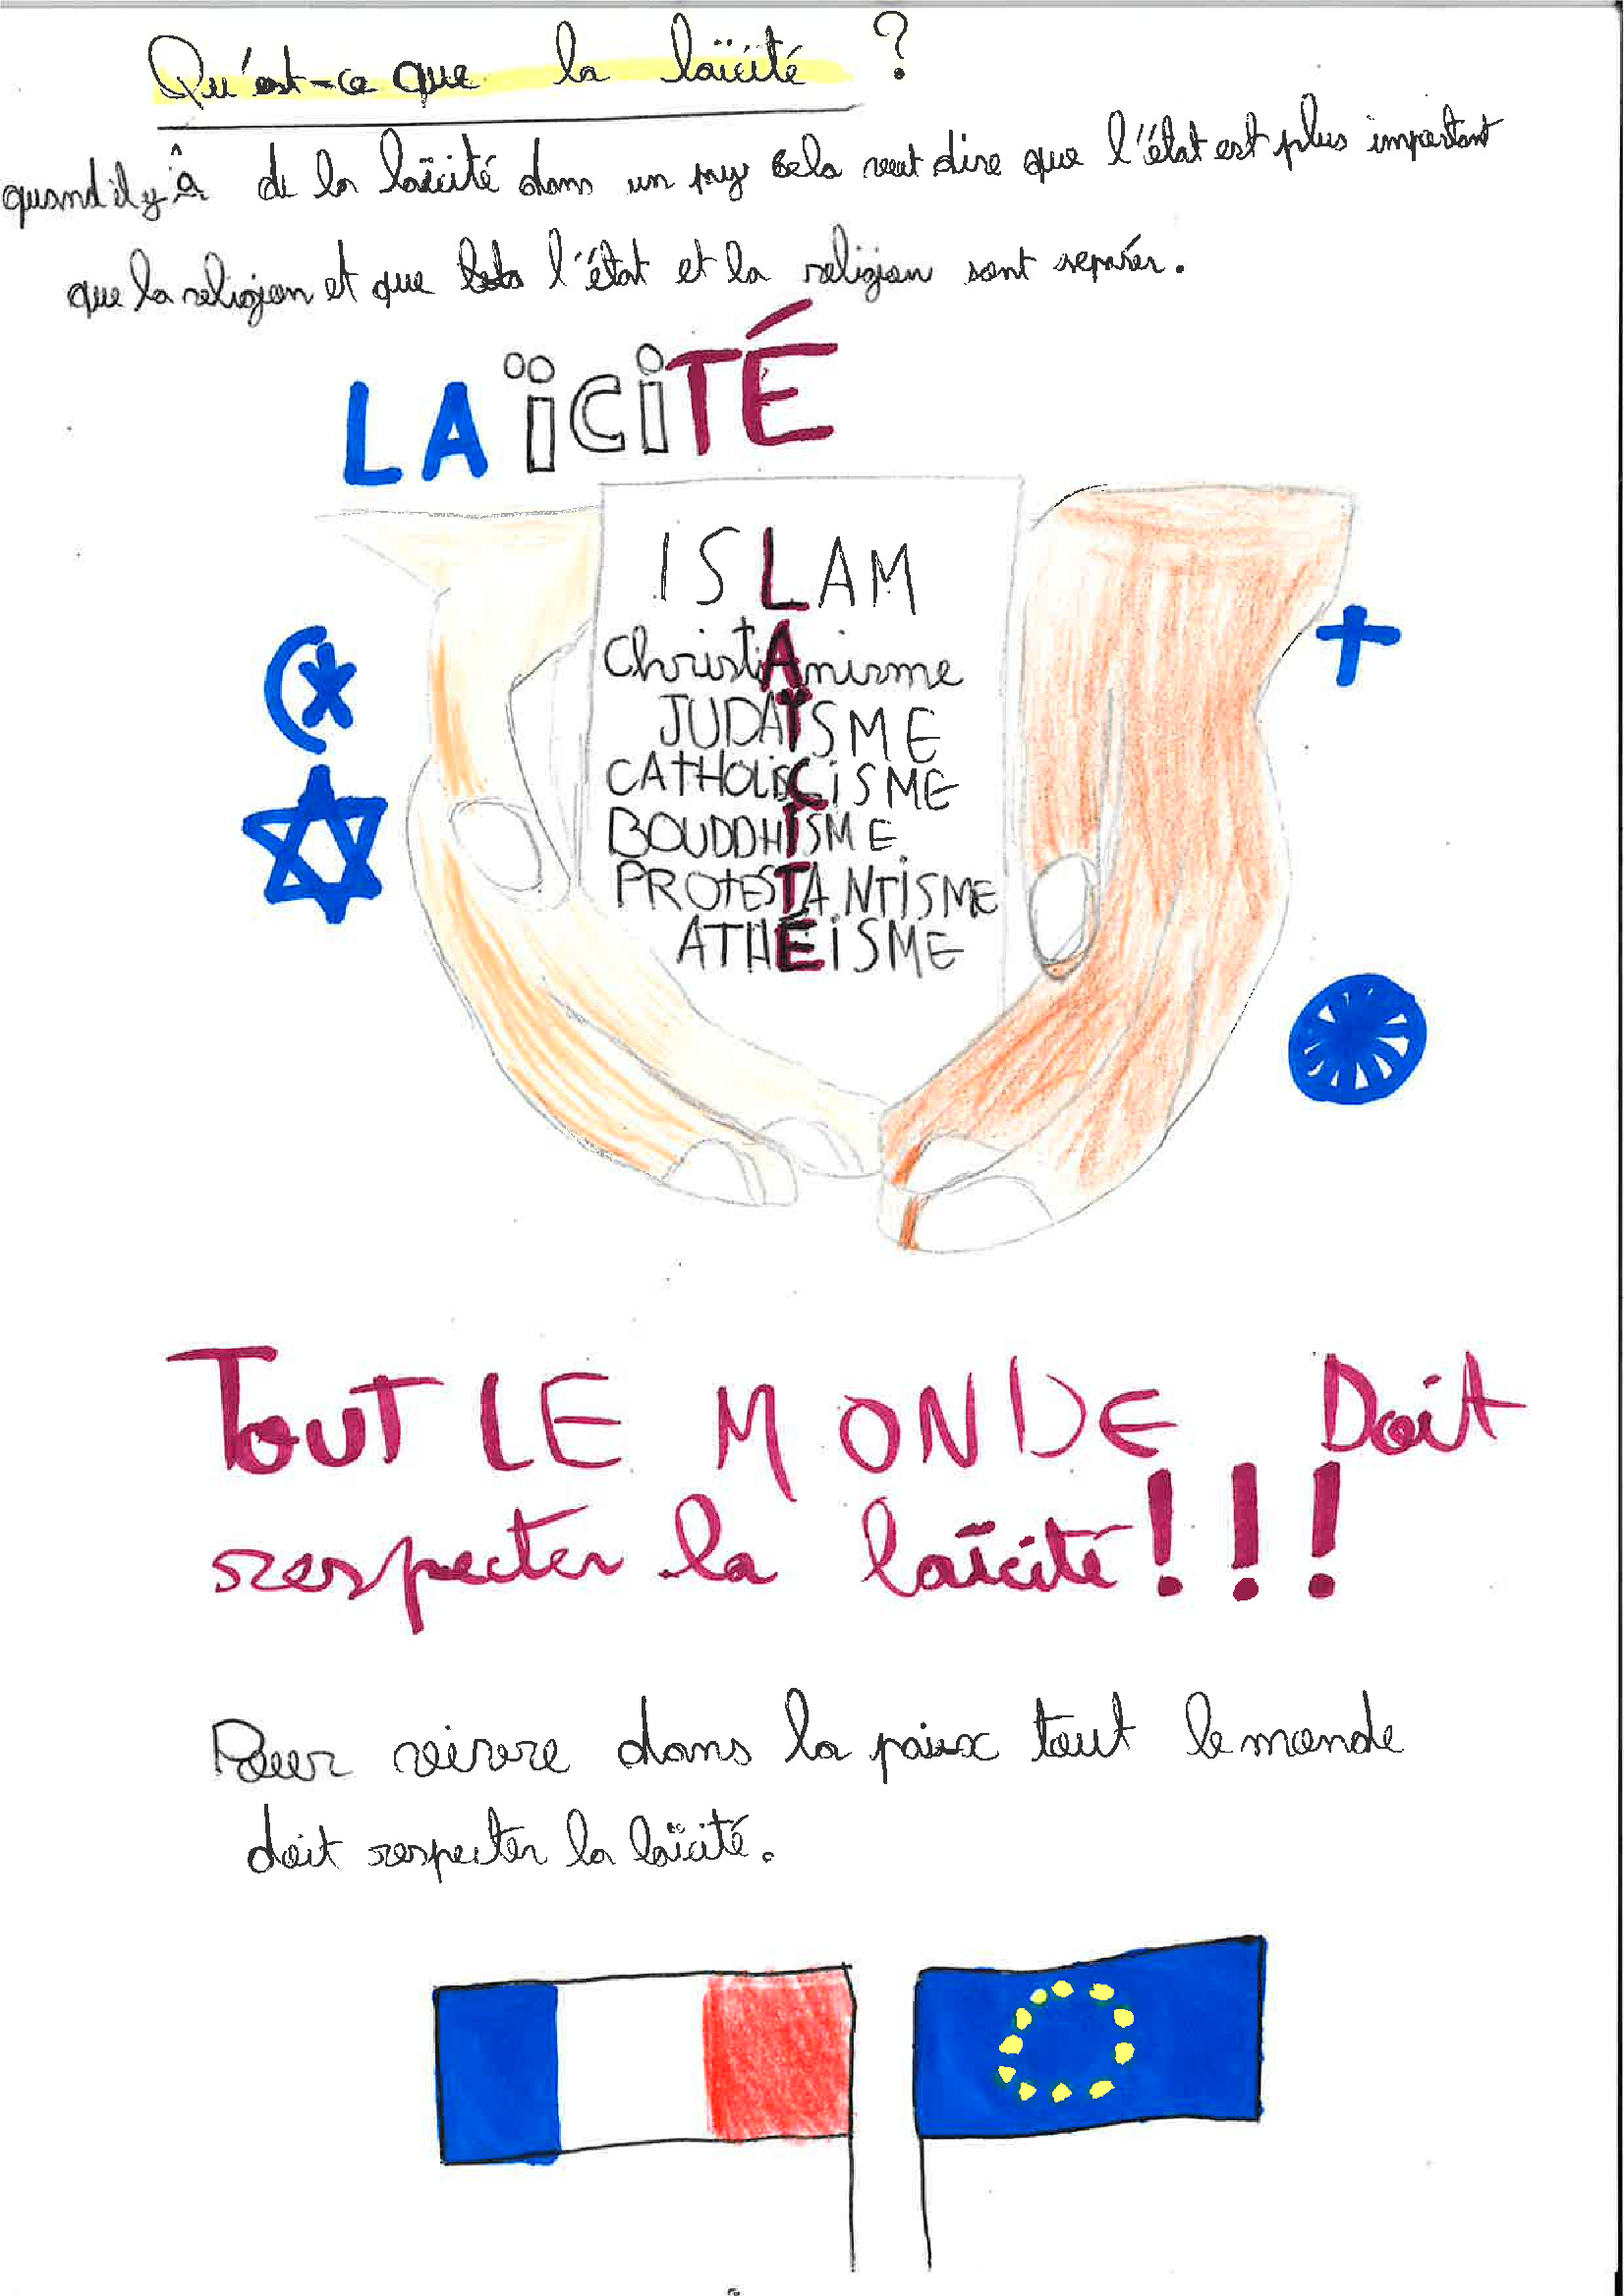 Qu'est-ce que la laïcité ?
quand il y â de la laïcité dans un pays cela veut dire que l'état est plus important
que la religion et que l'état et la religion sont séparér.
LAïCiTÉ
ISLAM
ChristiAnisme
JUDAÏSME
CATHOLiCiSME
BOUDDHISME
PROtESTANTiSME
ATHÉiSME
TOUT LE MONDE Doit
respecter la laïcité!!!
Pour vivre dans la paix tout le monde
doit respecter la laïcité.